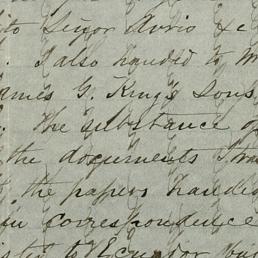 to Señor Avrio &c
. I also handed to M
ames G. King's Sons
. The substance of
the documents I tra
the papers handed
in correspondence
to Ecuador